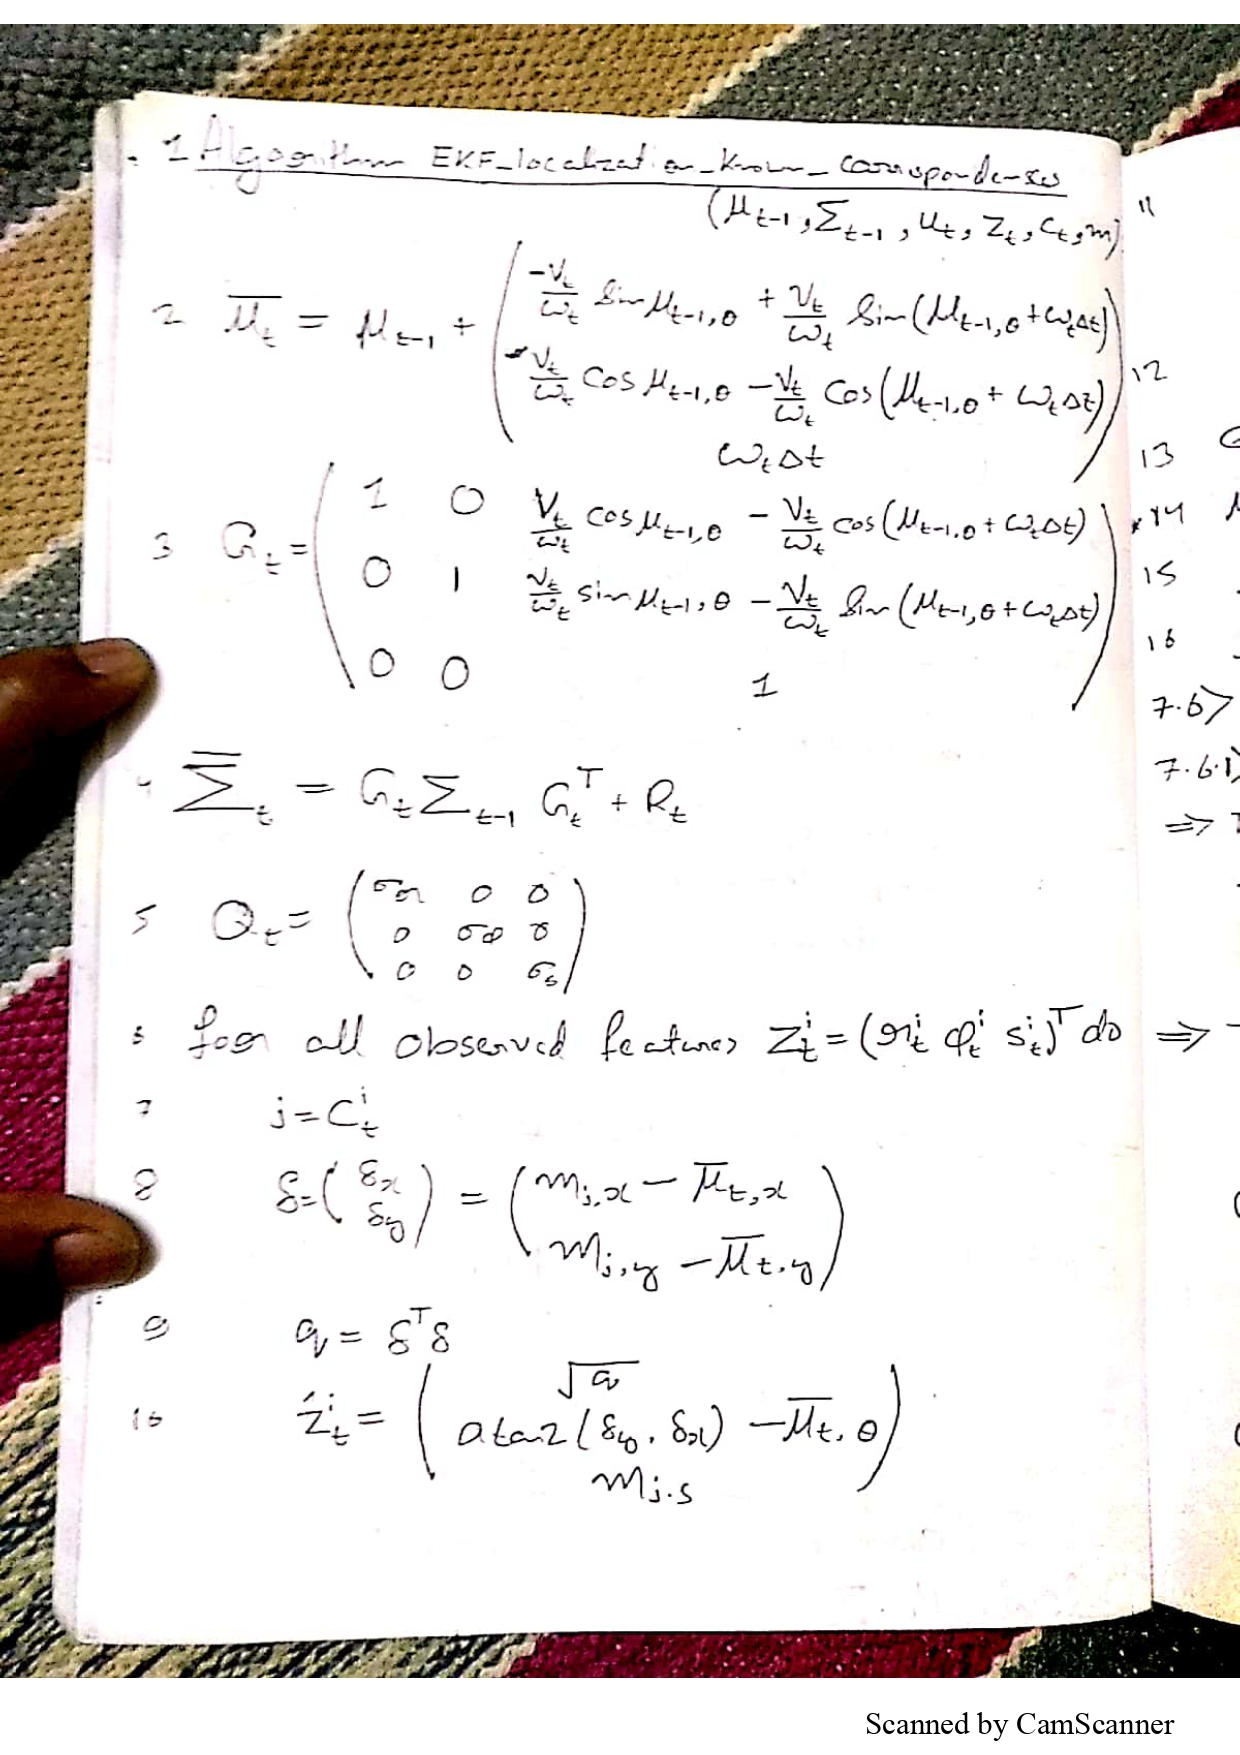 1 Algorithm EKF_localization_known_correspondenses
(μ_{t-1}, Σ_{t-1}, u_t, z_t, c_t, m)
2 \bar{μ}_t = μ_{t-1} + ( -v_t/ω_t sin μ_{t-1,θ} + v_t/ω_t sin(μ_{t-1,θ} + ω_tΔt)
v_t/ω_t cos μ_{t-1,θ} - v_t/ω_t cos(μ_{t-1,θ} + ω_tΔt)
ω_tΔt )
3 G_t = ( 1 0 v_t/ω_t cos μ_{t-1,θ} - v_t/ω_t cos(μ_{t-1,θ} + ω_tΔt)
0 1 v_t/ω_t sin μ_{t-1,θ} - v_t/ω_t sin(μ_{t-1,θ} + ω_tΔt)
0 0 1 )
4 \bar{Σ}_t = G_t Σ_{t-1} G_t^T + R_t
5 Q_t = ( σ_r 0 0
0 σ_φ 0
0 0 σ_s )
6 for all observed features z_t^i = (r_t^i φ_t^i s_t^i)^T do
7 j = c_t^i
8 δ = ( δ_x
δ_y ) = ( m_{j,x} - \bar{μ}_{t,x}
m_{j,y} - \bar{μ}_{t,y} )
9 q = δ^T δ
10 \hat{z}_t^i = ( √q
atan2(δ_y, δ_x) - \bar{μ}_{t,θ}
m_{j,s} )
11
12
13
14
15
16
7.6>
7.6.1>
⇒
⇒
Scanned by CamScanner